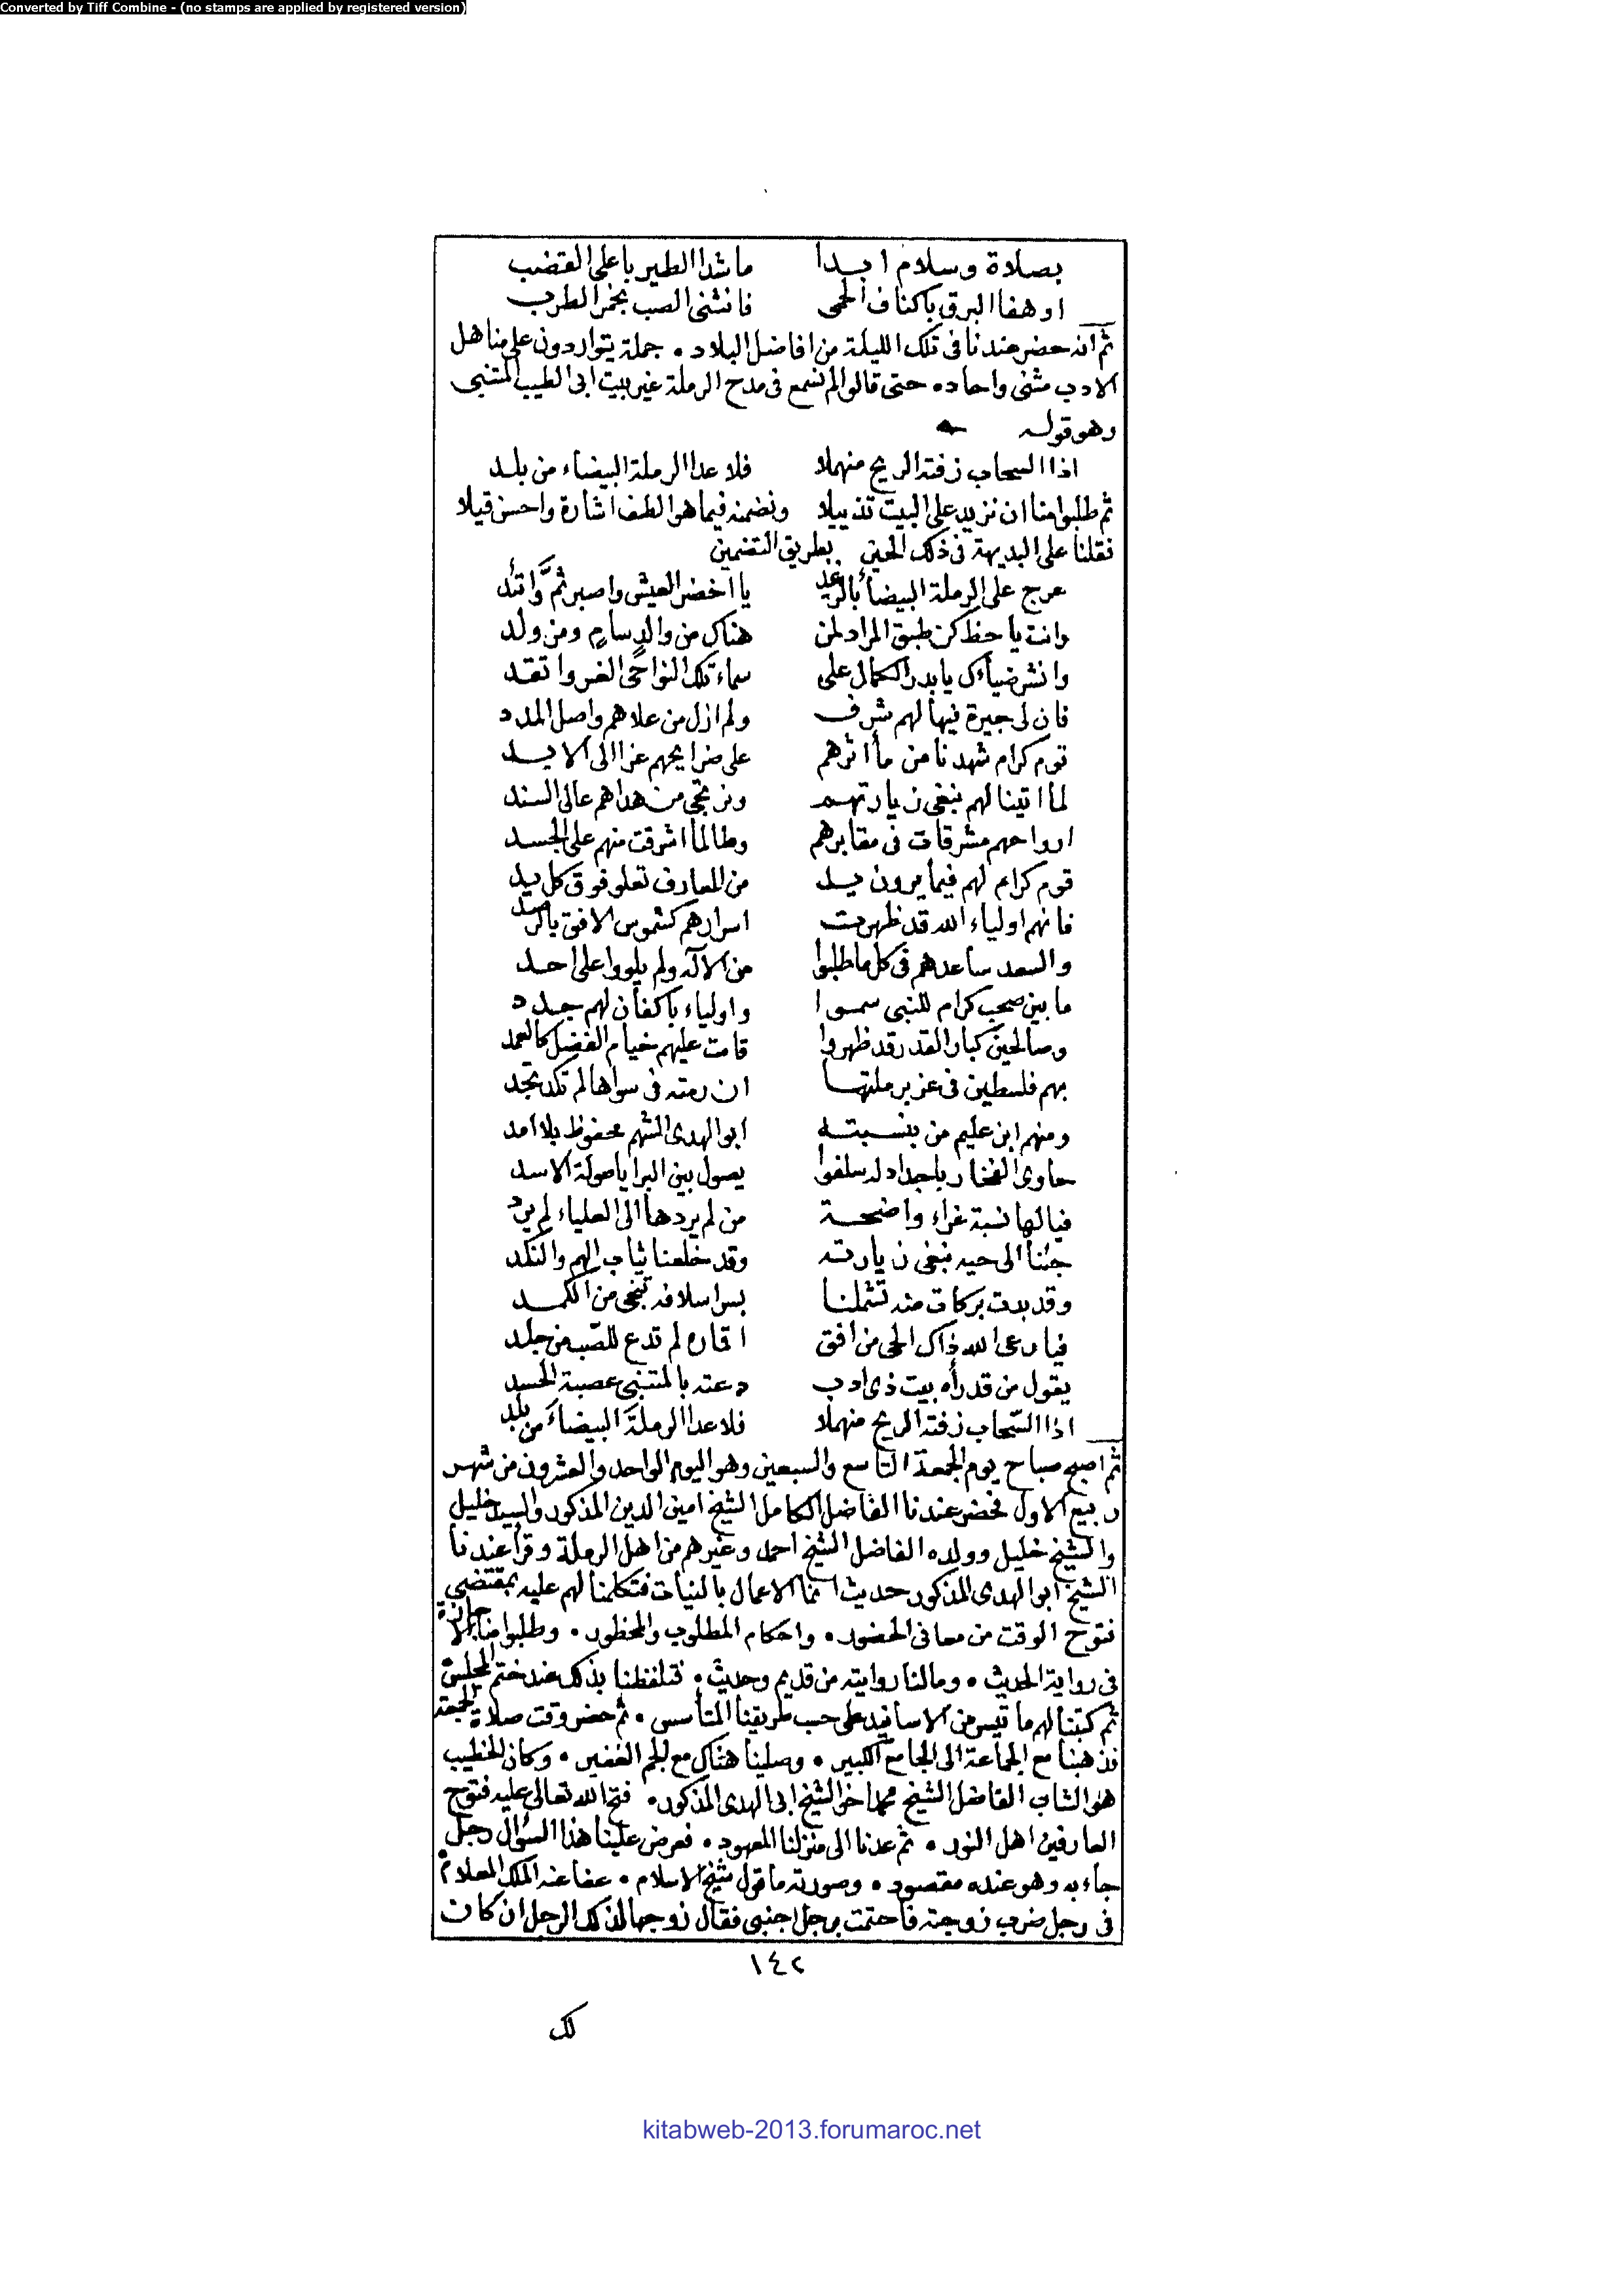 Converted by Tiff Combine - (no stamps are applied by registered version)
بصلاة وسلام ابدا ما شدا الطير باعلى القضب
او هفا البرق باكناف الحمى فانثنى الصب بخمر الطرب
ثم انه حضر عندنا فى تلك الليلة من افاضل البلاد . جملة يتواردون على مناهل
الادب مثنى واحاد . حتى قالوا لم نسمع فى مدح الرملة غير بيت ابى الطيب المتنبى
وهو قوله
اذا السحاب زفته الريح منهملا فلا عدا الرملة البيضاء من بلد
ثم طلبوا منا ان نزيد على البيت تذييلا ونضمنه فيما هو الطف اشارة واحسن قيلا
فقلنا على البديهة فى ذلك الحين بطريق التضمين
عرج على الرملة البيضاء بالرغد يا اخضر العيش واصبر ثم واتئد
وانت يا حظ كن طبق المراد لمن هناك من والد سام ومن ولد
وانشر ضياءك يا بدر الكمال على سماء تلك النواحى الغر واتقد
فان لى جيرة فيها لهم شرف ولم ازل من علاهم واصل المدد
قوم كرام شهدنا من مآثرهم على ضرايحهم عزا الى الابد
لما اتينا لهم نبغى زيارتهم ونرتجى من هداهم عالى السند
ارواحهم مشرقات فى مقابرهم وطالما اشرقت منهم على الجسد
قوم كرام لهم فيما يرون يد من المعارف تعلو فوق كل يد
فانهم اولياء الله قد ظهرت اسرارهم كشموس الافق بالرصد
والسعد ساعدهم فى كل ما طلبوا من الاله ولم يلووا على احد
ما بين صحب كرام للنبى سموا واولياء باكفان لهم جدد
وصالحين كبار القدر قد ظهروا قامت عليهم خيام الفضل كالعمد
بهم فلسطين فى عز برملتها ان رمته فى سواها لم تكد تجد
ومنهم ابن عليم من بنسبته ابو الهدى الشهم محفوظ بلا امد
حاوى الفخار باجداد له سلفوا يصول بين البرايا صولة الاسد
فيا لها نسبة غراء واضحة من لم يردها الى العلياء لم يرد
جئنا الى حيه نبغى زيارته وقد خلعنا ثياب الهم والنكد
وقد بدت بركات منه تشملنا بسر اسلافه تنجى من الكمد
فيا رعى الله ذاك الحى من افق اقماره لم تدع للصب من جلد
يقول من قد رآه بيت ذى ادب دعته بالمتنبى عصبة الحسد
اذا السحاب زفته الريح منهملا فلا عدا الرملة البيضاء من بلد
ثم اصبح صباح يوم الجمعة التاسع والسبعين وهو اليوم الواحد والعشرون من شهر
ربيع الاول فحضر عندنا الفاضل الكامل الشيخ امين الدين المذكور والسيد خليل
والشيخ خليل وولده الفاضل الشيخ احمد وغيرهم من اهل الرملة وقرأ عندنا
الشيخ ابو الهدى المذكور حديث انما الاعمال بالنيات فتكلمنا لهم عليه بمقتضى
فتوح الوقت من معانى الحضور . واحكام المطلوب والمحظور . وطلبوا منا الاجازة
فى رواية الحديث . وما لنا روايته من قديم وحديث . فتلفظنا بذلك عند ختم المجلس
ثم كتبنا لهم ما تيسر من الاسانيد على حسب طريقنا المتأسس . ثم حضر وقت صلاة الجمعة
فذهبنا مع الجماعة الى الجامع الكبير . وصلينا هناك مع الجم الغفير . وكان الخطيب
هو الشاب الفاضل الشيخ محمد اخو الشيخ ابى الهدى المذكور . فتح الله تعالى عليه فتوح
العارفين اهل النور . ثم عدنا الى منزلنا المعهود . فعرض علينا هذا السؤال رجل
جاء به وهو عنده مقصود . وصورته ما قول شيخ الاسلام . عفا عنه الملك العلام
فى رجل ضرب زوجته فاحتمت برجل اجنبى فقال زوجها لذلك الرجل ان كان
١٤٢
لك
kitabweb-2013.forumaroc.net